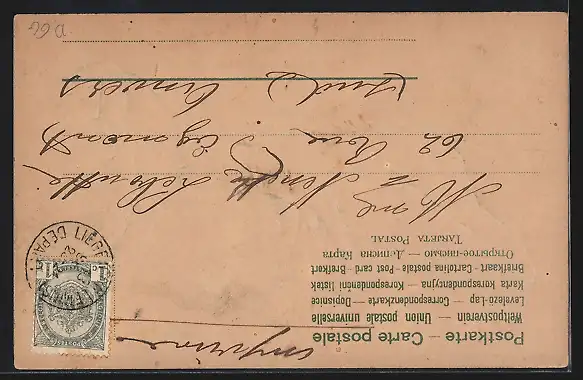 imprimé
Postkarte — Carte postale
Weltpostverein — Union postale universelle
Levelezö-Lap — Correspondenzkarte — Dopisnice
Karta korespondencyjna — Korespondenční lístek
Briefkaart — Cartolina postale — Post card — Brefkort
Открытое письмо — Дописна Карта
TARJETA POSTAL
62 Rue Egmont
Sud Anvers
LIÉGE
DÉPART
1
1
D66